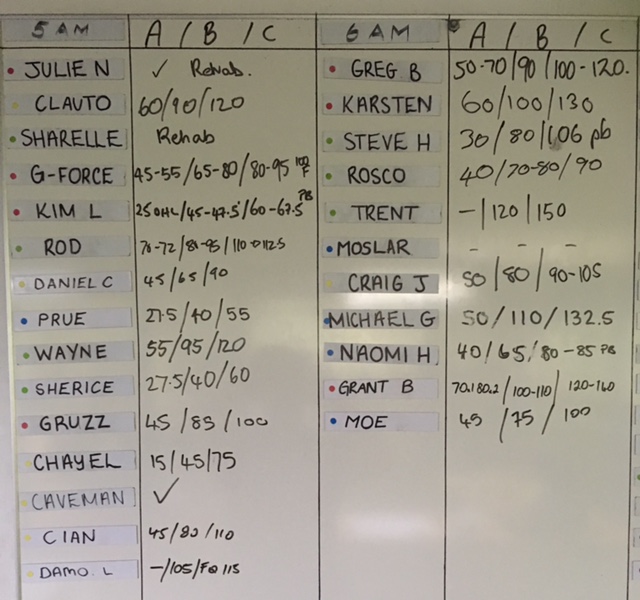 5 AM A / B / C
JULIE N ✓ Rehab.
CLAUTO 60/90/120
SHARELLE Rehab
G-FORCE 45-55/65-80/80-95
KIM L 25 OHL/45-47.5/60-67.5 PB
ROD
DANIEL C 45/65/90
PRUE 27.5/40/55
WAYNE 55/95/120
SHERICE 27.5/40/60
GRUZZ 45/85/100
CHAYEL 15/45/75
CAVEMAN ✓
CIAN 45/80/110
DAMO. L -/105/F@115
6 AM A / B / C
GREG B 50-70/90/100-120.
KARSTEN 60/100/130
STEVE H 30/80/106 pb
ROSCO 40/70-80/90
TRENT -/120/150
MOSLAR - - -
CRAIG J 50/80/90-105
MICHAEL G 50/110/132.5
NAOMI H 40/65/80-85 PB
GRANT B /100-110/120-140
MOE 45/75/100